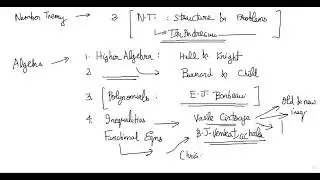 Number Theory → 3. [N.T. : Structure & Problems
Titu Andreescu
Algebra → 1. Higher Algebra : Hall & Knight
2. Burnard & Child
3. [Polynomials. E.J. Barbeau]
4. Inequalities Vasile Cirtoaje Old & new ineq.
Functional Eqns B.J. Venkatachala
Chris